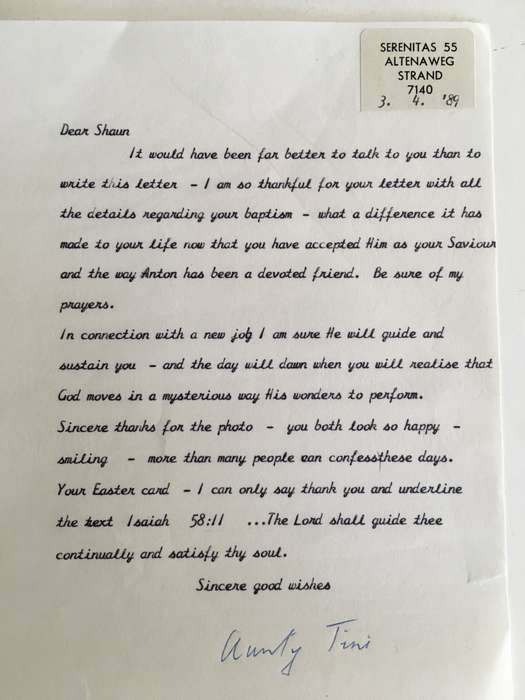 SERENITAS 55
ALTENAWEG
STRAND
7140
3. 4. '89
Dear Shaun
It would have been far better to talk to you than to
write this letter - I am so thankful for your letter with all
the details regarding your baptism - what a difference it has
made to your life now that you have accepted Him as your Saviour
and the way Anton has been a devoted friend. Be sure of my
prayers.
In connection with a new job I am sure He will guide and
sustain you - and the day will dawn when you will realise that
God moves in a mysterious way His wonders to perform.
Sincere thanks for the photo - you both look so happy -
smiling - more than many people can confessthese days.
Your Easter card - I can only say thank you and underline
the text Isaiah 58:11 ...The Lord shall guide thee
continually and satisfy thy soul.
Sincere good wishes
Aunty Tini